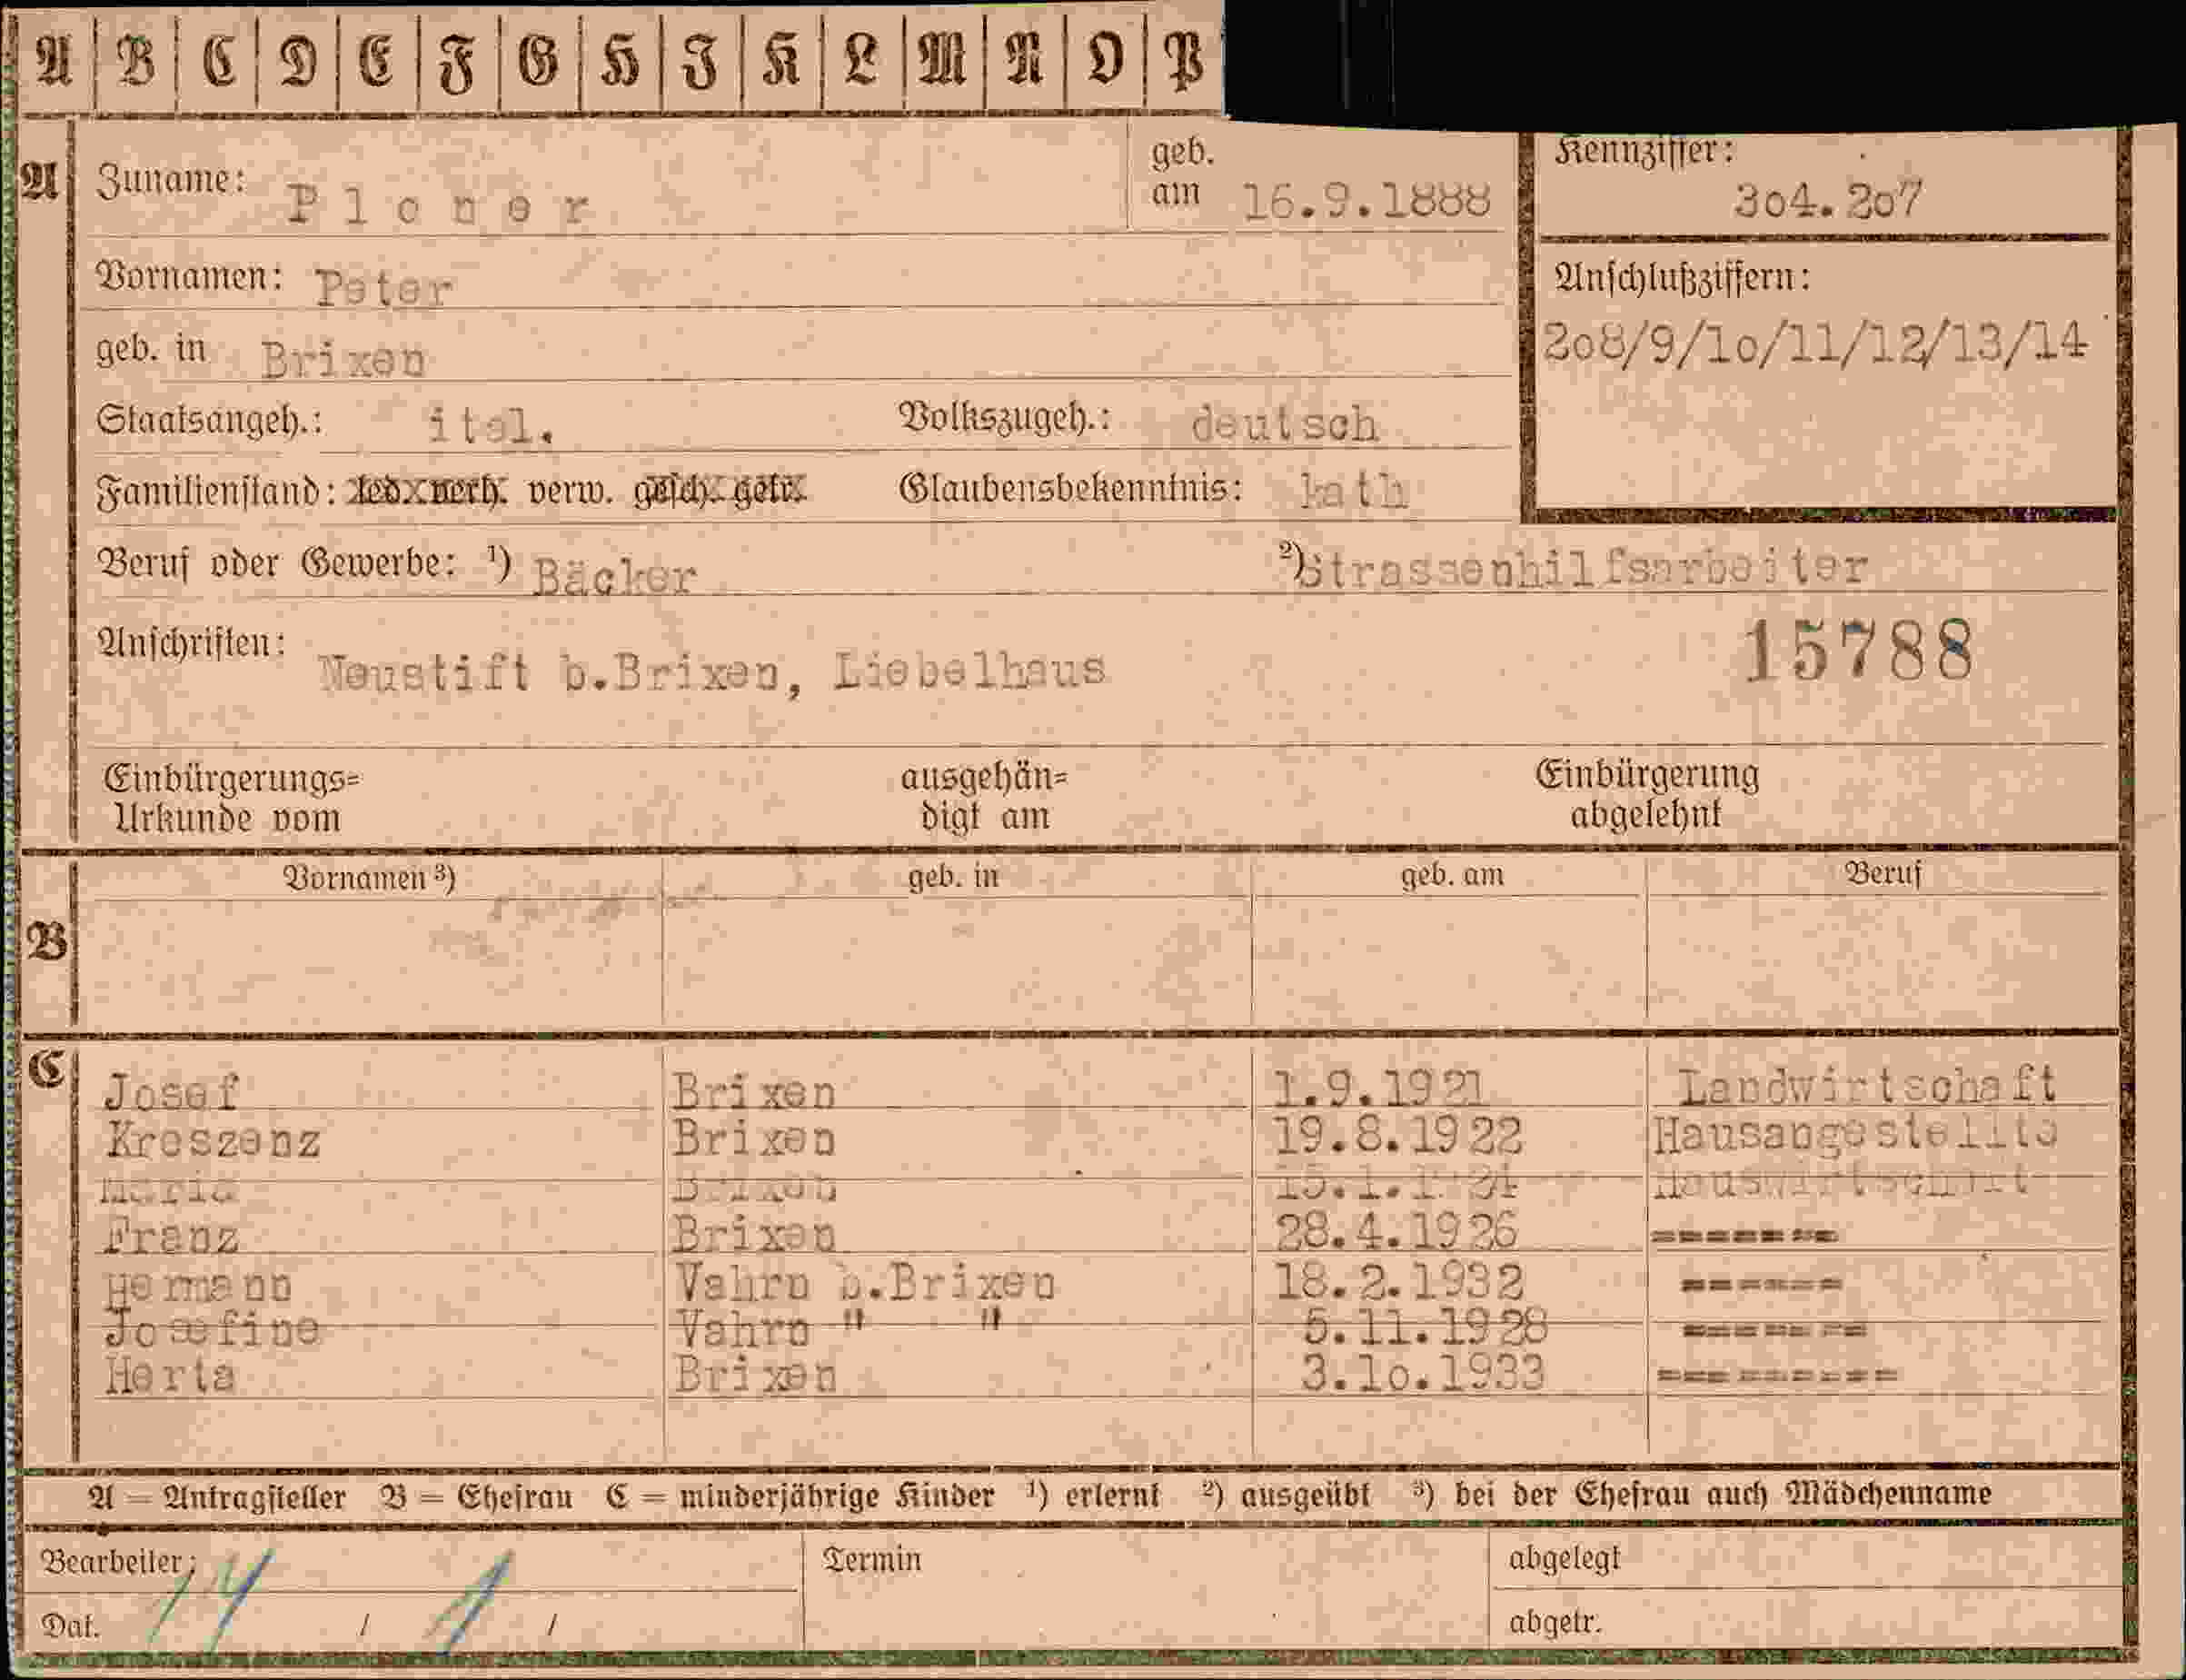 A B C D E F G H I K L M N O P
A Zuname: Ploner geb. am 16.9.1888 Kennziffer: 304.207
Vornamen: Peter
geb. in Brixen
Anschlußziffern: 208/9/10/11/12/13/14
Staatsangeh.: ital. Volkszugeh.: deutsch
Familienstand: led. verh. verw. gesch. getr. Glaubensbekenntnis: kath
Beruf oder Gewerbe: ¹) Bäcker ²) Strassenhilfsarbeiter
Anschriften: Neustift b.Brixen, Liebelhaus 15788
Einbürgerungs= ausgehän= Einbürgerung
Urkunde vom digt am abgelehnt
Vornamen ³) geb. in geb. am Beruf
B
C Josef Brixen 1.9.1921 Landwirtschaft
Kreszenz Brixen 19.8.1922 Hausangestellte
Maria Brixen Hauswirtschaft
Franz Brixen 28.4.1926 =======
Hermann Vahrn b.Brixen 18.2.1932 ======
Josefine Vahrn " " 5.11.1928 =======
Herta Brixen 3.10.1933 =========
A = Antragsteller B = Ehefrau C = minderjährige Kinder ¹) erlernt ²) ausgeübt ³) bei der Ehefrau auch Mädchenname
Bearbeiter: Termin abgelegt
Dat. / / abgetr.